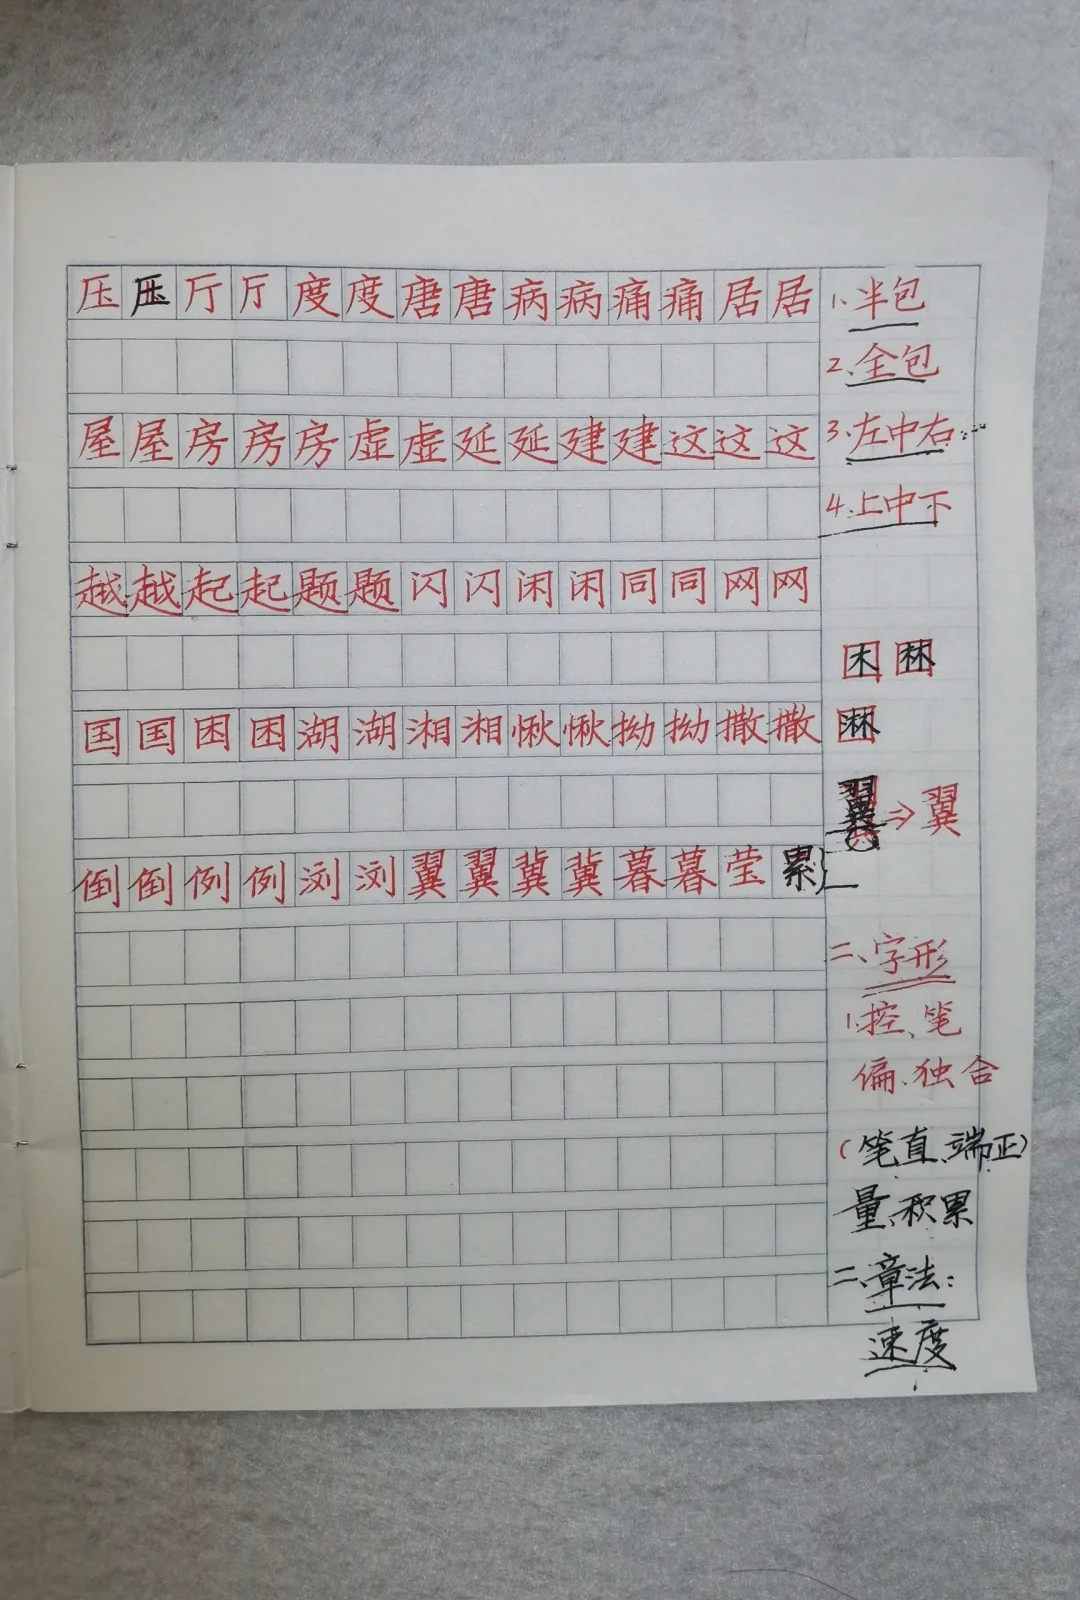 压压厅厅度度唐唐病病痛痛居居
屋屋房房房虚虚延延建建这这这
越越起起题题闪闪闲闲同同网网
国国困困湖湖湘湘愀愀拗拗撒撒
倒倒例例浏浏翼翼冀冀暮暮莹累
1.半包
2.全包
3.左中右
4.上中下
困
翼⇒翼
二、字形
1.控、笔
偏.独合
(笔直、端正)
量、积累
二、章法:
速度